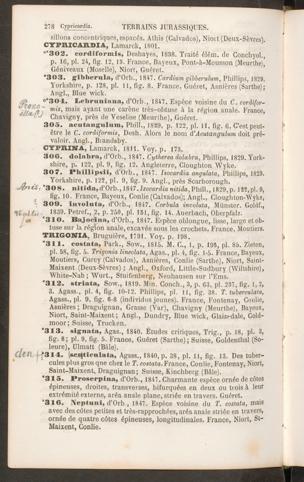 278 Cypricardia. TERRAINS JURASSIQUES.
sillons concentriques, espacés. Athis (Calvados), Niort (Deux-Sèvres).
CYPRICARDIA, Lamarck, 1801.
*302. cordiformis, Deshayes, 1838. Traité élém. de Conchyol.,
p. 16, pl. 24, fig. 12, 13. France, Bayeux, Pont-à-Mousson (Meurthe),
Géniveaux (Moselle), Niort, Guéret.
*303. gibberula, d'Orb., 1847. Cardium gibberulum, Phillips, 1829.
Yorkshire, p. 128, pl. 11, fig. 8. France, Guéret, Asnières (Sarthe);
Angl., Blue wick.
*304. Lebruniana, d'Orb., 1847. Espèce voisine du C. cordifor-
mis, mais ayant une carène très-obtuse à la région anale. France,
Chavigny, près de Veselise (Meurthe), Guéret.
305. acutangulum, Phill., 1829, p. 122, pl. 11, fig. 6. C'est peut-
être le C. cordiformis, Desh. Alors le nom d'Acutangulum doit pré-
valoir. Angl., Brandsby.
CYPRINA, Lamarck, 1811. Voy. p. 173.
306. dolabra, d'Orb., 1847. Cytherea dolabra, Phillips, 1829. York-
shire, p. 122, pl. 9, fig. 12. Angleterre, Cloughton Wyke.
307. Phillipsii, d'Orb., 1847. Isocardia angulata, Phillips, 1829.
Yorkshire, p. 122, pl. 9, fig. 9. Angl., près Scarborough.
*308. nitida, d'Orb., 1847. Isocardia nitida, Phill., 1829, p. 122, pl. 9,
fig. 10. France, Bayeux, Conlie (Calvados); Angl., Cloughton-Wyke.
309. involuta, d'Orb., 1847. Cerbula involuta, Münster. Goldf.,
1839. Petref., 2, p. 250, pl. 151, fig. 14. Auerbach, Oberpfalz.
*310. Bajocina, d'Orb., 1847. Espèce oblongue, lisse, large et ob-
tuse sur la région anale, excavée sous les crochets. France, Moutiers.
TRIGONIA, Bruguière, 1791. Voy. p. 198.
*311. costata, Park., Sow., 1815. M. C., 1, p. 195, pl. 85. Zieten,
pl. 58, fig. 5. Trigonia lineolata, Agas., pl. 4, fig. 1-5. France, Bayeux,
Moutiers, Curcy (Calvados); Asnières, Conlie (Sarthe), Niort, Saint-
Maixent (Deux-Sèvres); Angl., Oxford, Little-Sudbury (Wiltshire),
White-Nab; Wurt., Stuifenberg, Neuhausen sur l'Ems.
*312. striata, Sow., 1819. Min. Conch., 3, p. 63, pl. 237, fig. 1, 2,
3. Agass., pl. 4, fig. 10-12. Phillips, pl. 11, fig. 38. T. tuberculata,
Agass., pl. 9, fig. 6-8 (individus jeunes). France, Fontenay, Conlie,
Asnières; Draguignan, Grasse (Var), Chavigny (Meurthe), Bayeux,
Niort, Saint-Maixent; Angl., Dundry, Blue wick, Glaiz-dale, Cold-
moor; Suisse, Trucken.
*313. signata, Agas., 1840. Études critiques, Trig., p. 18, pl. 3,
fig. 8; pl. 9, fig. 5. France, Guéret (Sarthe); Suisse, Goldenthal (So-
leure), Ulmatt (Bâle).
den
*314. denticulata, Agass., 1840, p. 38, pl. 11, fig. 13. Des tuber-
cules plus gros que chez le T. costata. France, Conlie, Fontenay, Niort,
Saint-Maixent, Draguignan; Suisse, Kischberg (Bâle).
*315. Proserpina, d'Orb., 1847. Charmante espèce ornée de côtes
épineuses, droites, transverses, bifurquées en deux ou trois à leur
extrémité externe, aréa anale plane, striée en travers. Guéret.
*316. Neptuni, d'Orb., 1847. Espèce voisine du T. costata, mais
avec des côtes petites et très-rapprochées, aréa anale striée en travers,
ornée de quatre côtes épineuses, longitudinales. France, Niort, St-
Maixent, Conlie.